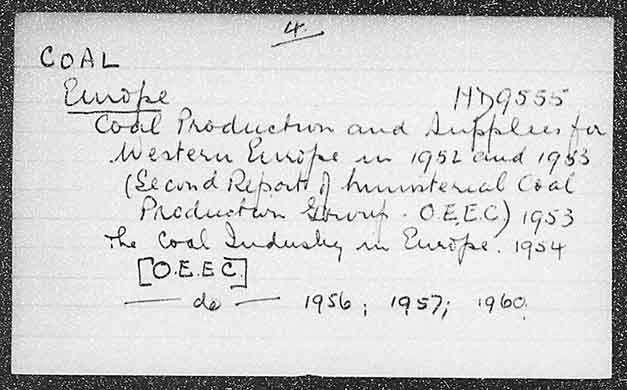 4.
COAL
Europe HD9555
Coal Production and Supplies for
Western Europe in 1952 and 1953
(Second Report of Ministerial Coal
Production Group. O.E.E.C.) 1953
The Coal Industry in Europe. 1954
[O.E.E.C.]
— do — 1956; 1957; 1960.